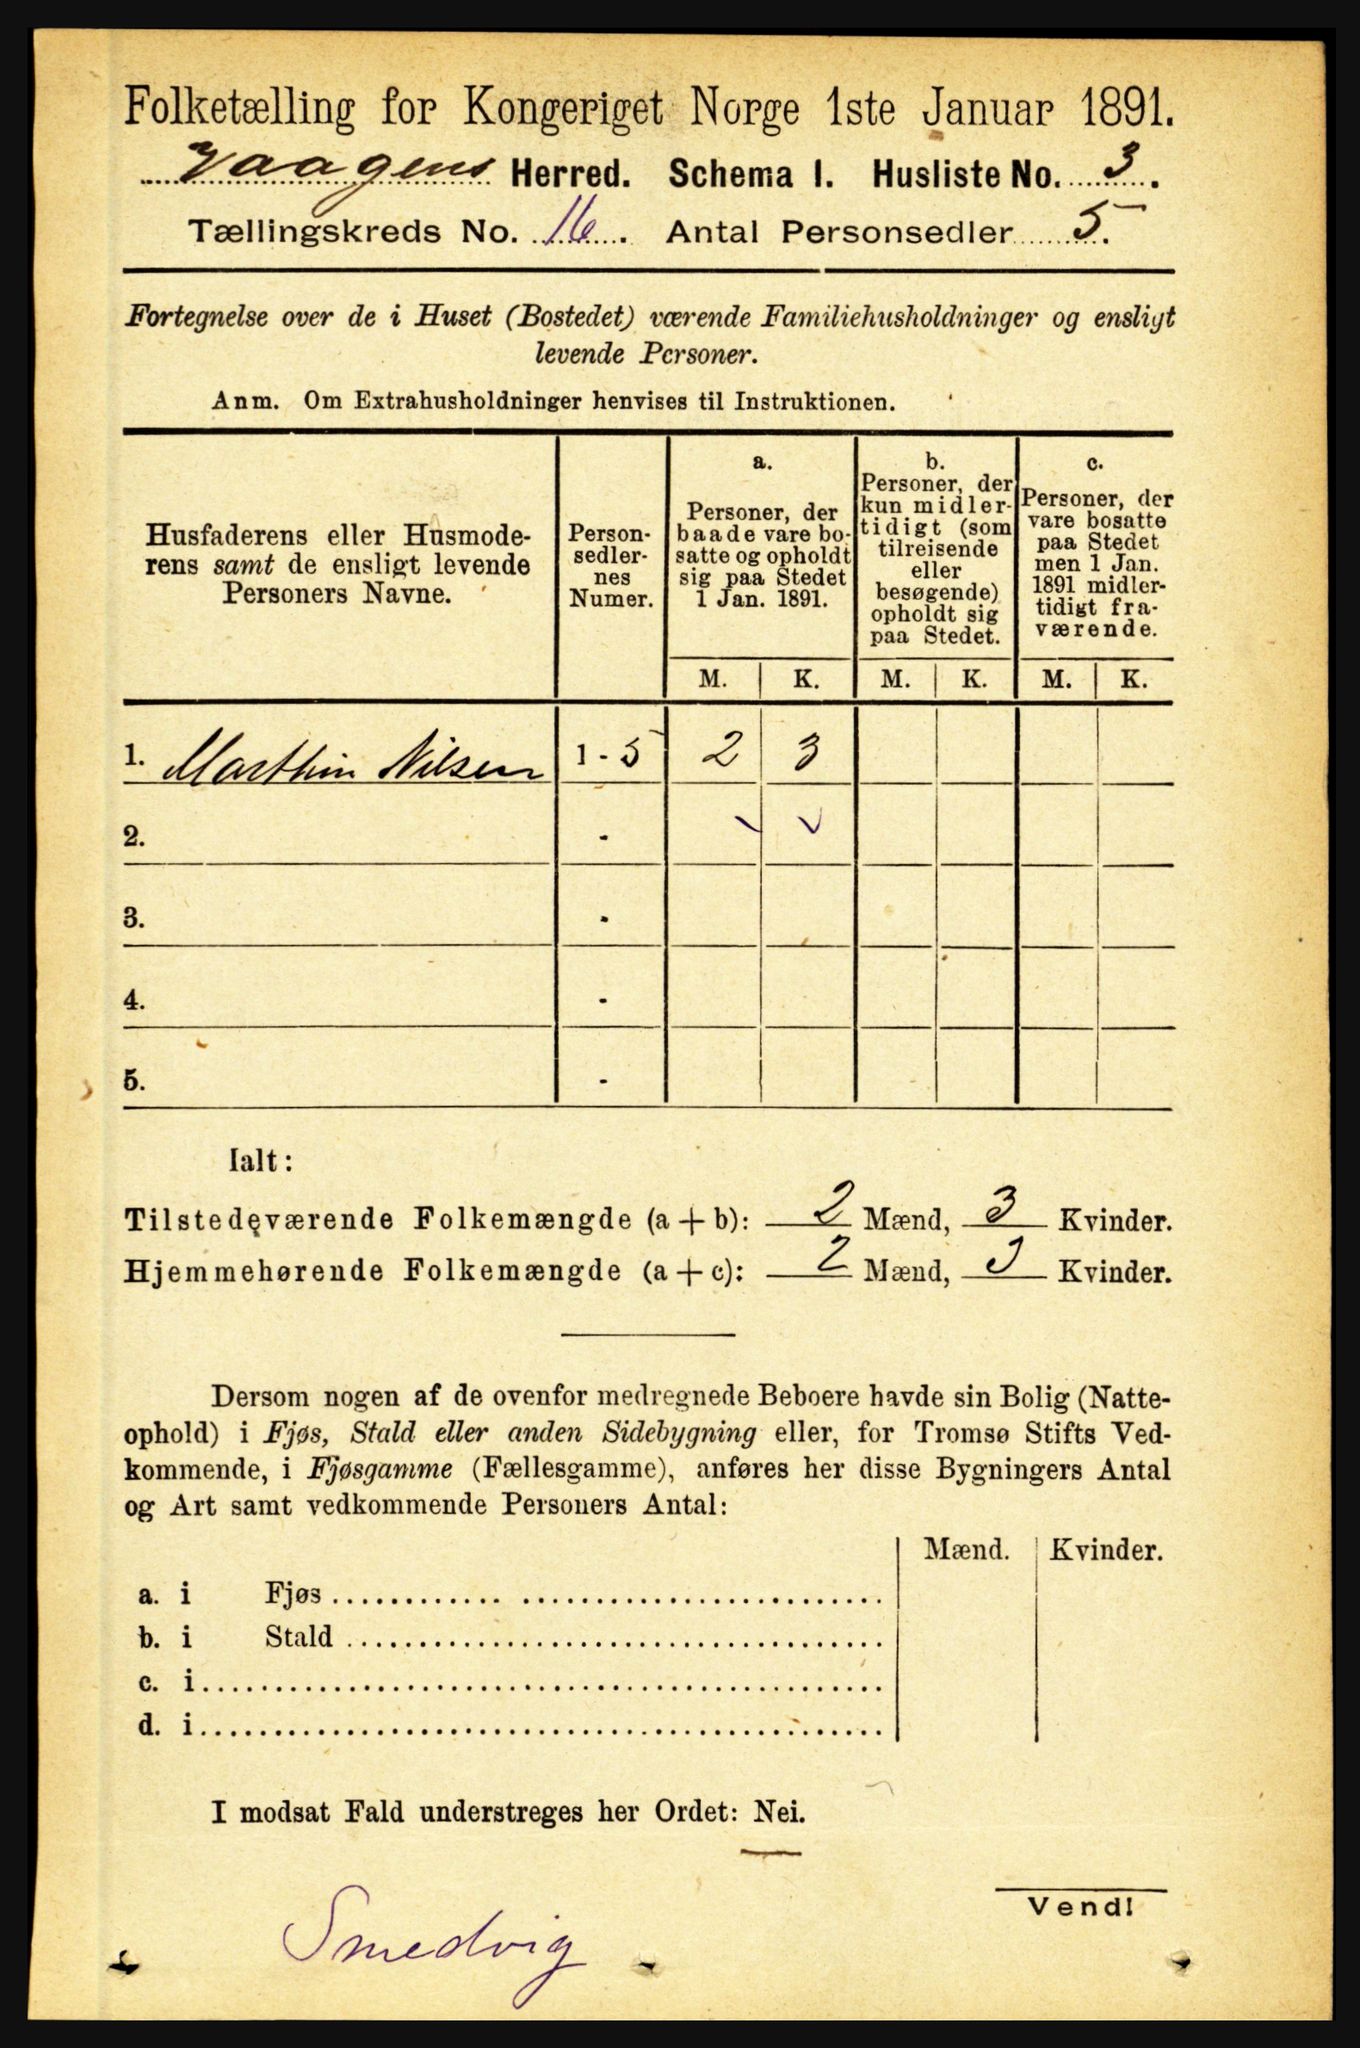 Folketælling for Kongeriget Norge 1ste Januar 1891.
Vaagens Herred. Schema I. Husliste No. 3.
Tællingskreds No. 16. Antal Personsedler 5.
Fortegnelse over de i Huset (Bostedet) værende Familiehusholdninger og ensligt
levende Personer.
Anm. Om Extrahusholdninger henvises til Instruktionen.
Husfaderens eller Husmode-
rens samt de ensligt levende
Personers Navne.
Person-
sedler-
nes
Numer.
a.
Personer, der
baade vare bo-
satte og opholdt
sig paa Stedet
1 Jan. 1891.
b.
Personer, der
kun midler-
tidigt (som
tilreisende
eller
besøgende)
opholdt sig
paa Stedet.
c.
Personer, der
vare bosatte
paa Stedet
men 1 Jan.
1891 midler-
tidigt fra-
værende.
M. K. M. K. M. K.
1. Marthin Nilsen 1 - 5 2 3
2. -
3. -
4. -
5. -
Ialt:
Tilstedeværende Folkemængde (a + b): 2 Mænd, 3 Kvinder.
Hjemmehørende Folkemængde (a + c): 2 Mænd, 3 Kvinder.
Dersom nogen af de ovenfor medregnede Beboere havde sin Bolig (Natte-
ophold) i Fjøs, Stald eller anden Sidebygning eller, for Tromsø Stifts Ved-
kommende, i Fjøsgamme (Fællesgamme), anføres her disse Bygningers Antal
og Art samt vedkommende Personers Antal:
Mænd. Kvinder.
a. i Fjøs
b. i Stald
c. i
d. i
I modsat Fald understreges her Ordet: Nei.
Vend!
Smedvig